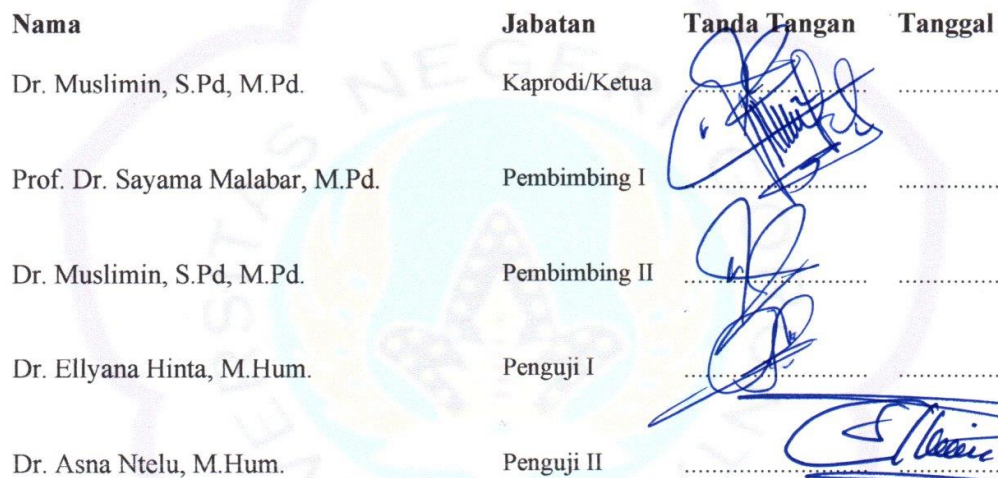 Nama Jabatan Tanda Tangan Tanggal
Dr. Muslimin, S.Pd, M.Pd. Kaprodi/Ketua .....................
Prof. Dr. Sayama Malabar, M.Pd. Pembimbing I ..............................
Dr. Muslimin, S.Pd, M.Pd. Pembimbing II ..............................
Dr. Ellyana Hinta, M.Hum. Penguji I ..............................
Dr. Asna Ntelu, M.Hum. Penguji II ..............................